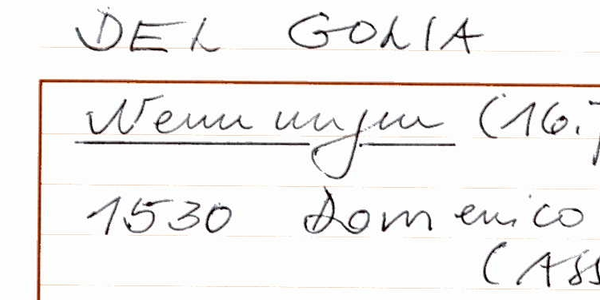 DEL GOLIA
Nennungen (16.
1530 Domenico
(ASS